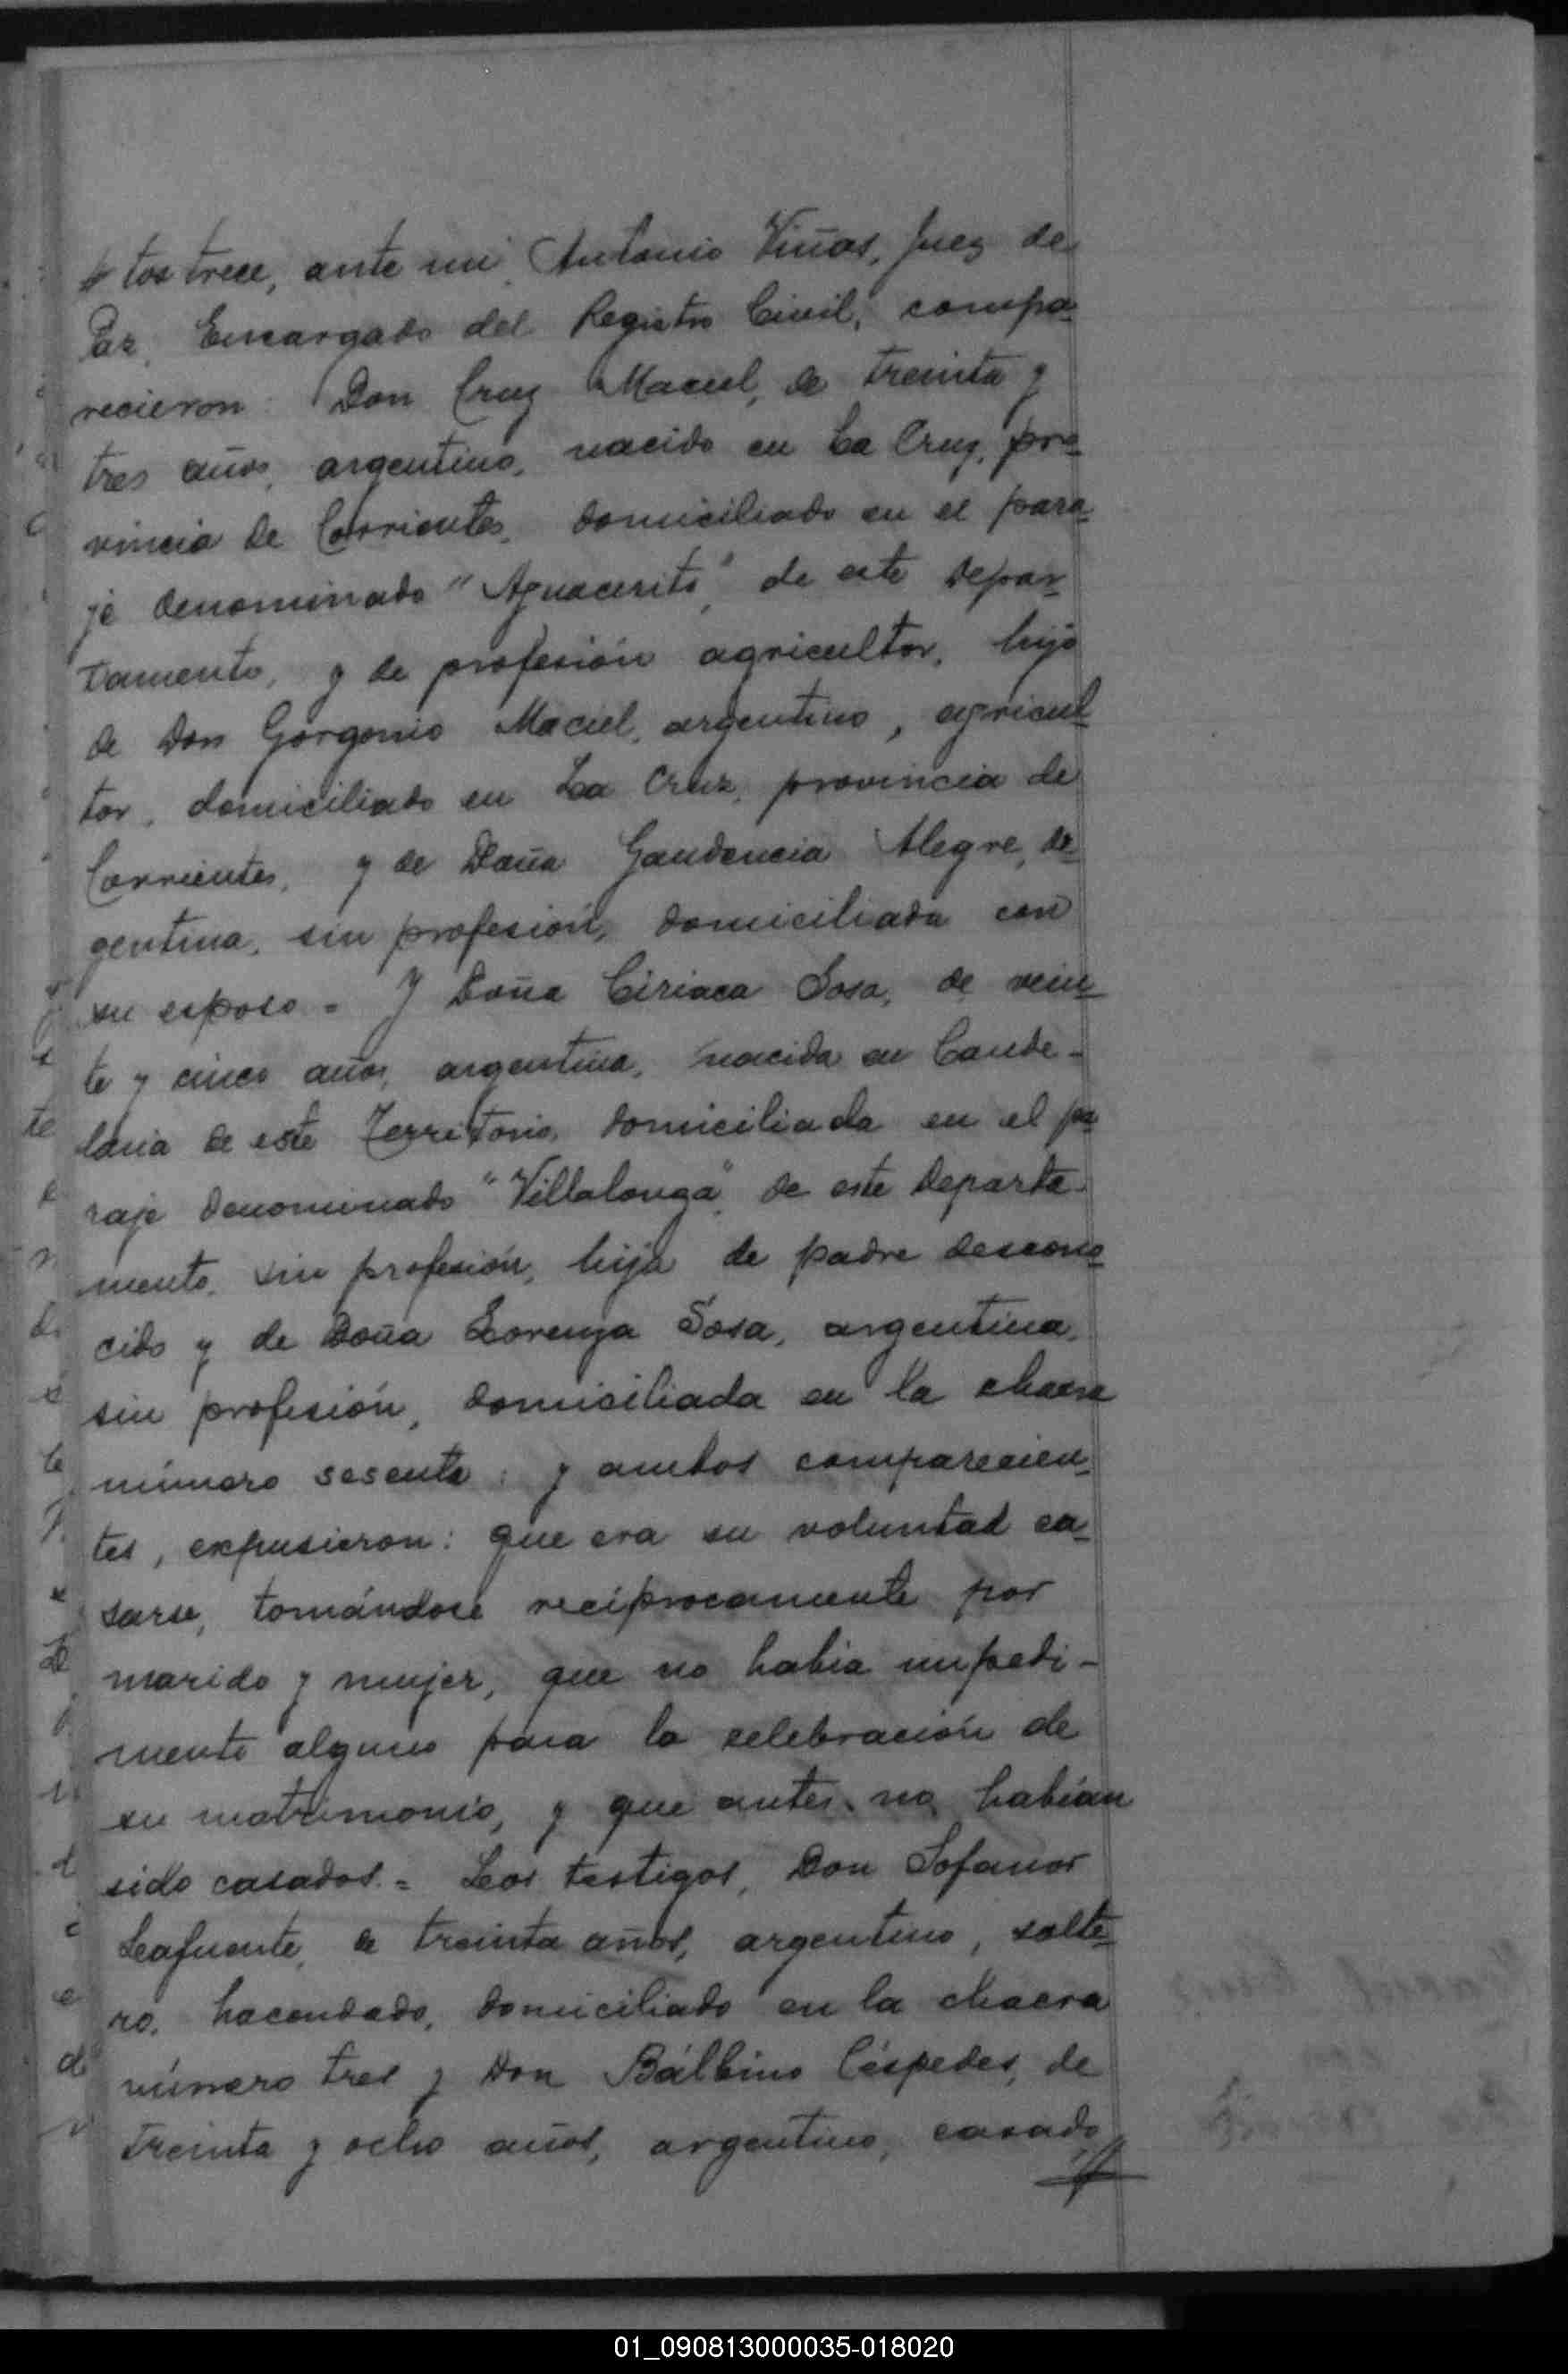 tos trece, ante mi Antonio Viñas, Juez de
Paz, Encargado del Registro Civil, compa-
recieron: Don Cruz Maciel, de treinta y
tres años, argentino, nacido en La Cruz, pro-
vincia de Corrientes, domiciliado en el para-
je denominado "Aguacerito", de este depar-
tamento, y de profesión agricultor, hijo
de Don Gorgonio Maciel, argentino, agricul-
tor, domiciliado en La Cruz, provincia de
Corrientes, y de Doña Gaudencia Alegre, ar-
gentina, sin profesión, domiciliada con
su esposo = Y Doña Ciriaca Sosa, de vein-
te y cinco años, argentina, nacida en Cande-
laria de este Territorio, domiciliada en el pa-
raje denominado "Villalonga", de este departa-
mento, sin profesión, hija de padre descono-
cido y de Doña Lorenza Sosa, argentina,
sin profesión, domiciliada en la chacra
número sesenta: y ambos comparecien-
tes, expusieron: que era su voluntad ca-
sarse, tomándose recíprocamente por
marido y mujer, que no había impedi-
mento alguno para la celebración de
su matrimonio, y que antes no habían
sido casados. = Los testigos, Don Sofanor
Lafuente, de treinta años, argentino, solte-
ro, hacendado, domiciliado en la chacra
número tres y Don Bálbino Céspedes, de
treinta y ocho años, argentino, casado
01_090813000035-018020